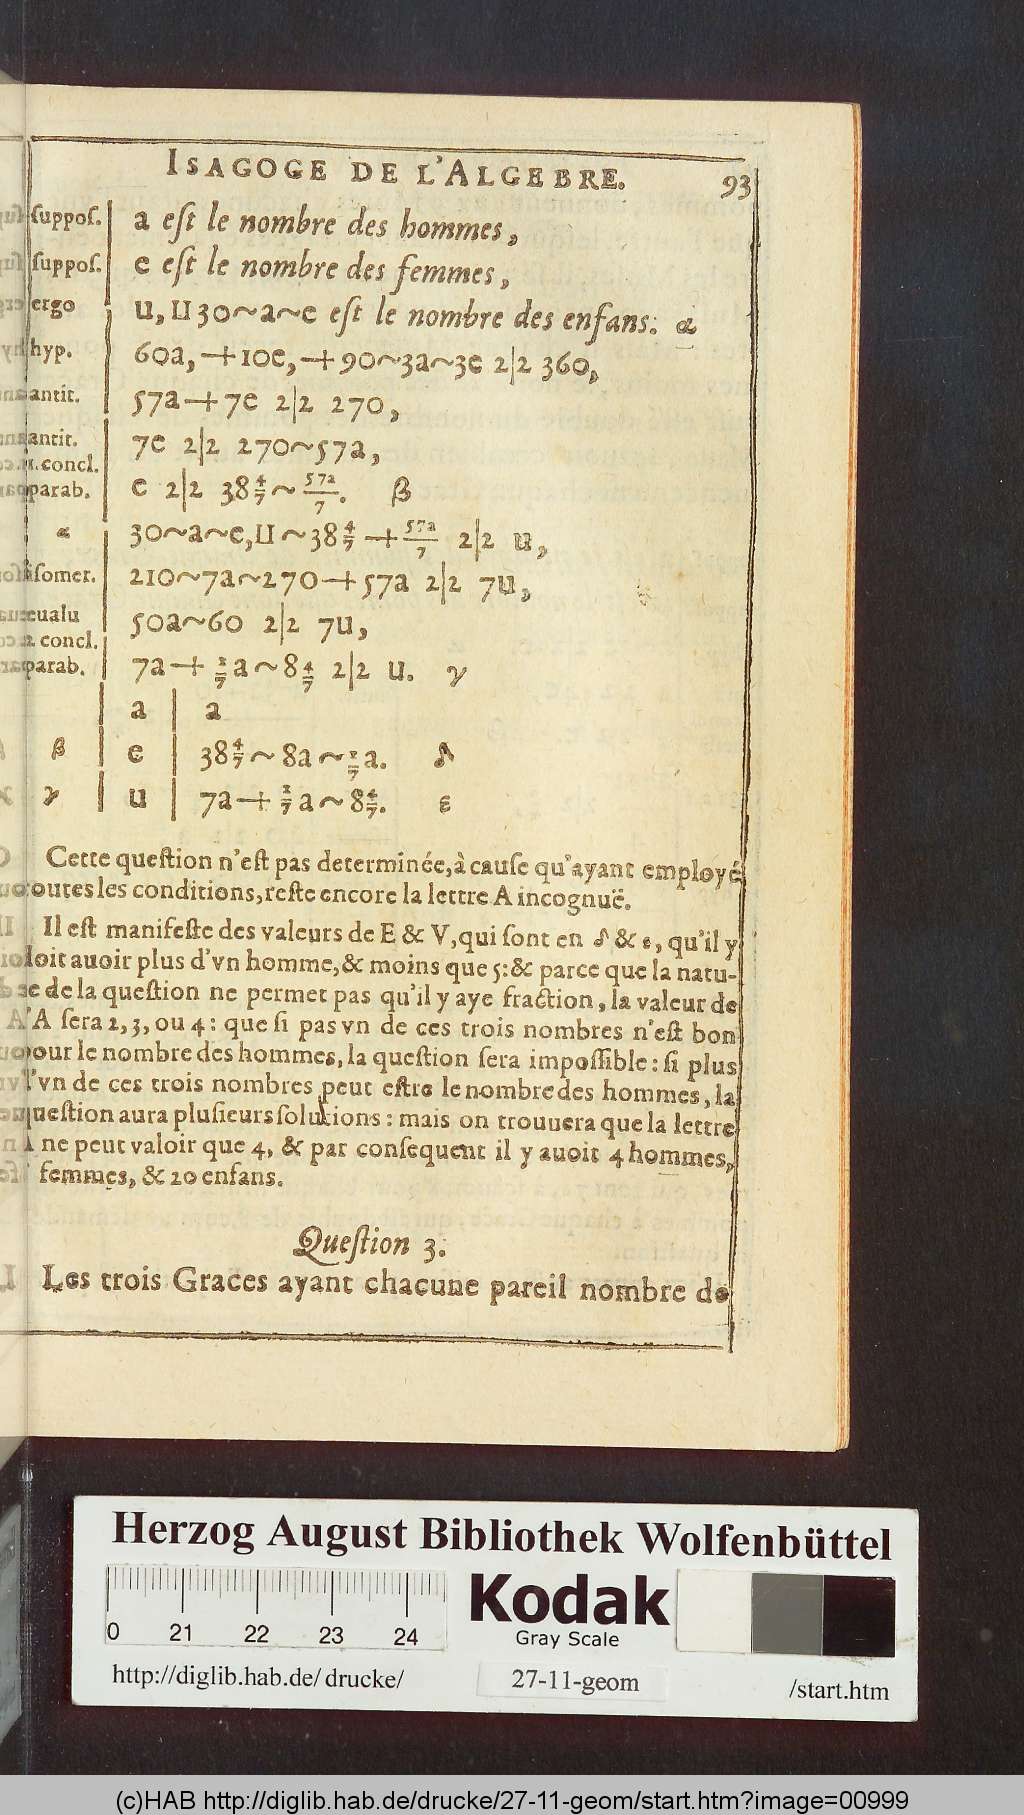 ISAGOGE DE L'ALGEBRE. 93
ſuppoſ. a eſt le nombre des hommes,
ſuppoſ. e eſt le nombre des femmes,
ergo u, ⊔ 30~a~e eſt le nombre des enfans: α
hyp. 60a, +10e, +90~3a~3e 2|2 360,
antit. 57a+7e 2|2 270,
antit. 7e 2|2 270~57a,
1. concl.
parab. e 2|2 38 4/7 ~ 57a/7. β
α 30~a~e, ⊔ ~38 4/7 + 57a/7 2|2 u,
iſomer. 210~7a~270+57a 2|2 7u,
eualu 50a~60 2|2 7u,
2 concl.
parab. 7a+ 1/7 a~8 4/7 2|2 u. γ
a | a
β e | 38 4/7 ~ 8a ~ 1/7 a. δ
γ u | 7a+ 1/7 a~8 4/7. ε
Cette queſtion n'eſt pas determinée, à cauſe qu'ayant employé
toutes les conditions, reſte encore la lettre A incognuë.
Il eſt manifeſte des valeurs de E & V, qui ſont en δ & ε, qu'il y
doit auoir plus d'vn homme, & moins que 5: & parce que la natu-
re de la queſtion ne permet pas qu'il y aye fraction, la valeur de
A ſera 2, 3, ou 4: que ſi pas vn de ces trois nombres n'eſt bon
pour le nombre des hommes, la queſtion ſera impoſſible: ſi plus
d'vn de ces trois nombres peut eſtre le nombre des hommes, la
queſtion aura pluſieurs ſolutions: mais on trouuera que la lettre
A ne peut valoir que 4, & par conſequent il y auoit 4 hommes,
femmes, & 20 enfans.
Queſtion 3.
Les trois Graces ayant chacune pareil nombre de
Herzog August Bibliothek Wolfenbüttel
0 21 22 23 24
Kodak
Gray Scale
http://diglib.hab.de/drucke/ 27-11-geom /start.htm
(c)HAB http://diglib.hab.de/drucke/27-11-geom/start.htm?image=00999